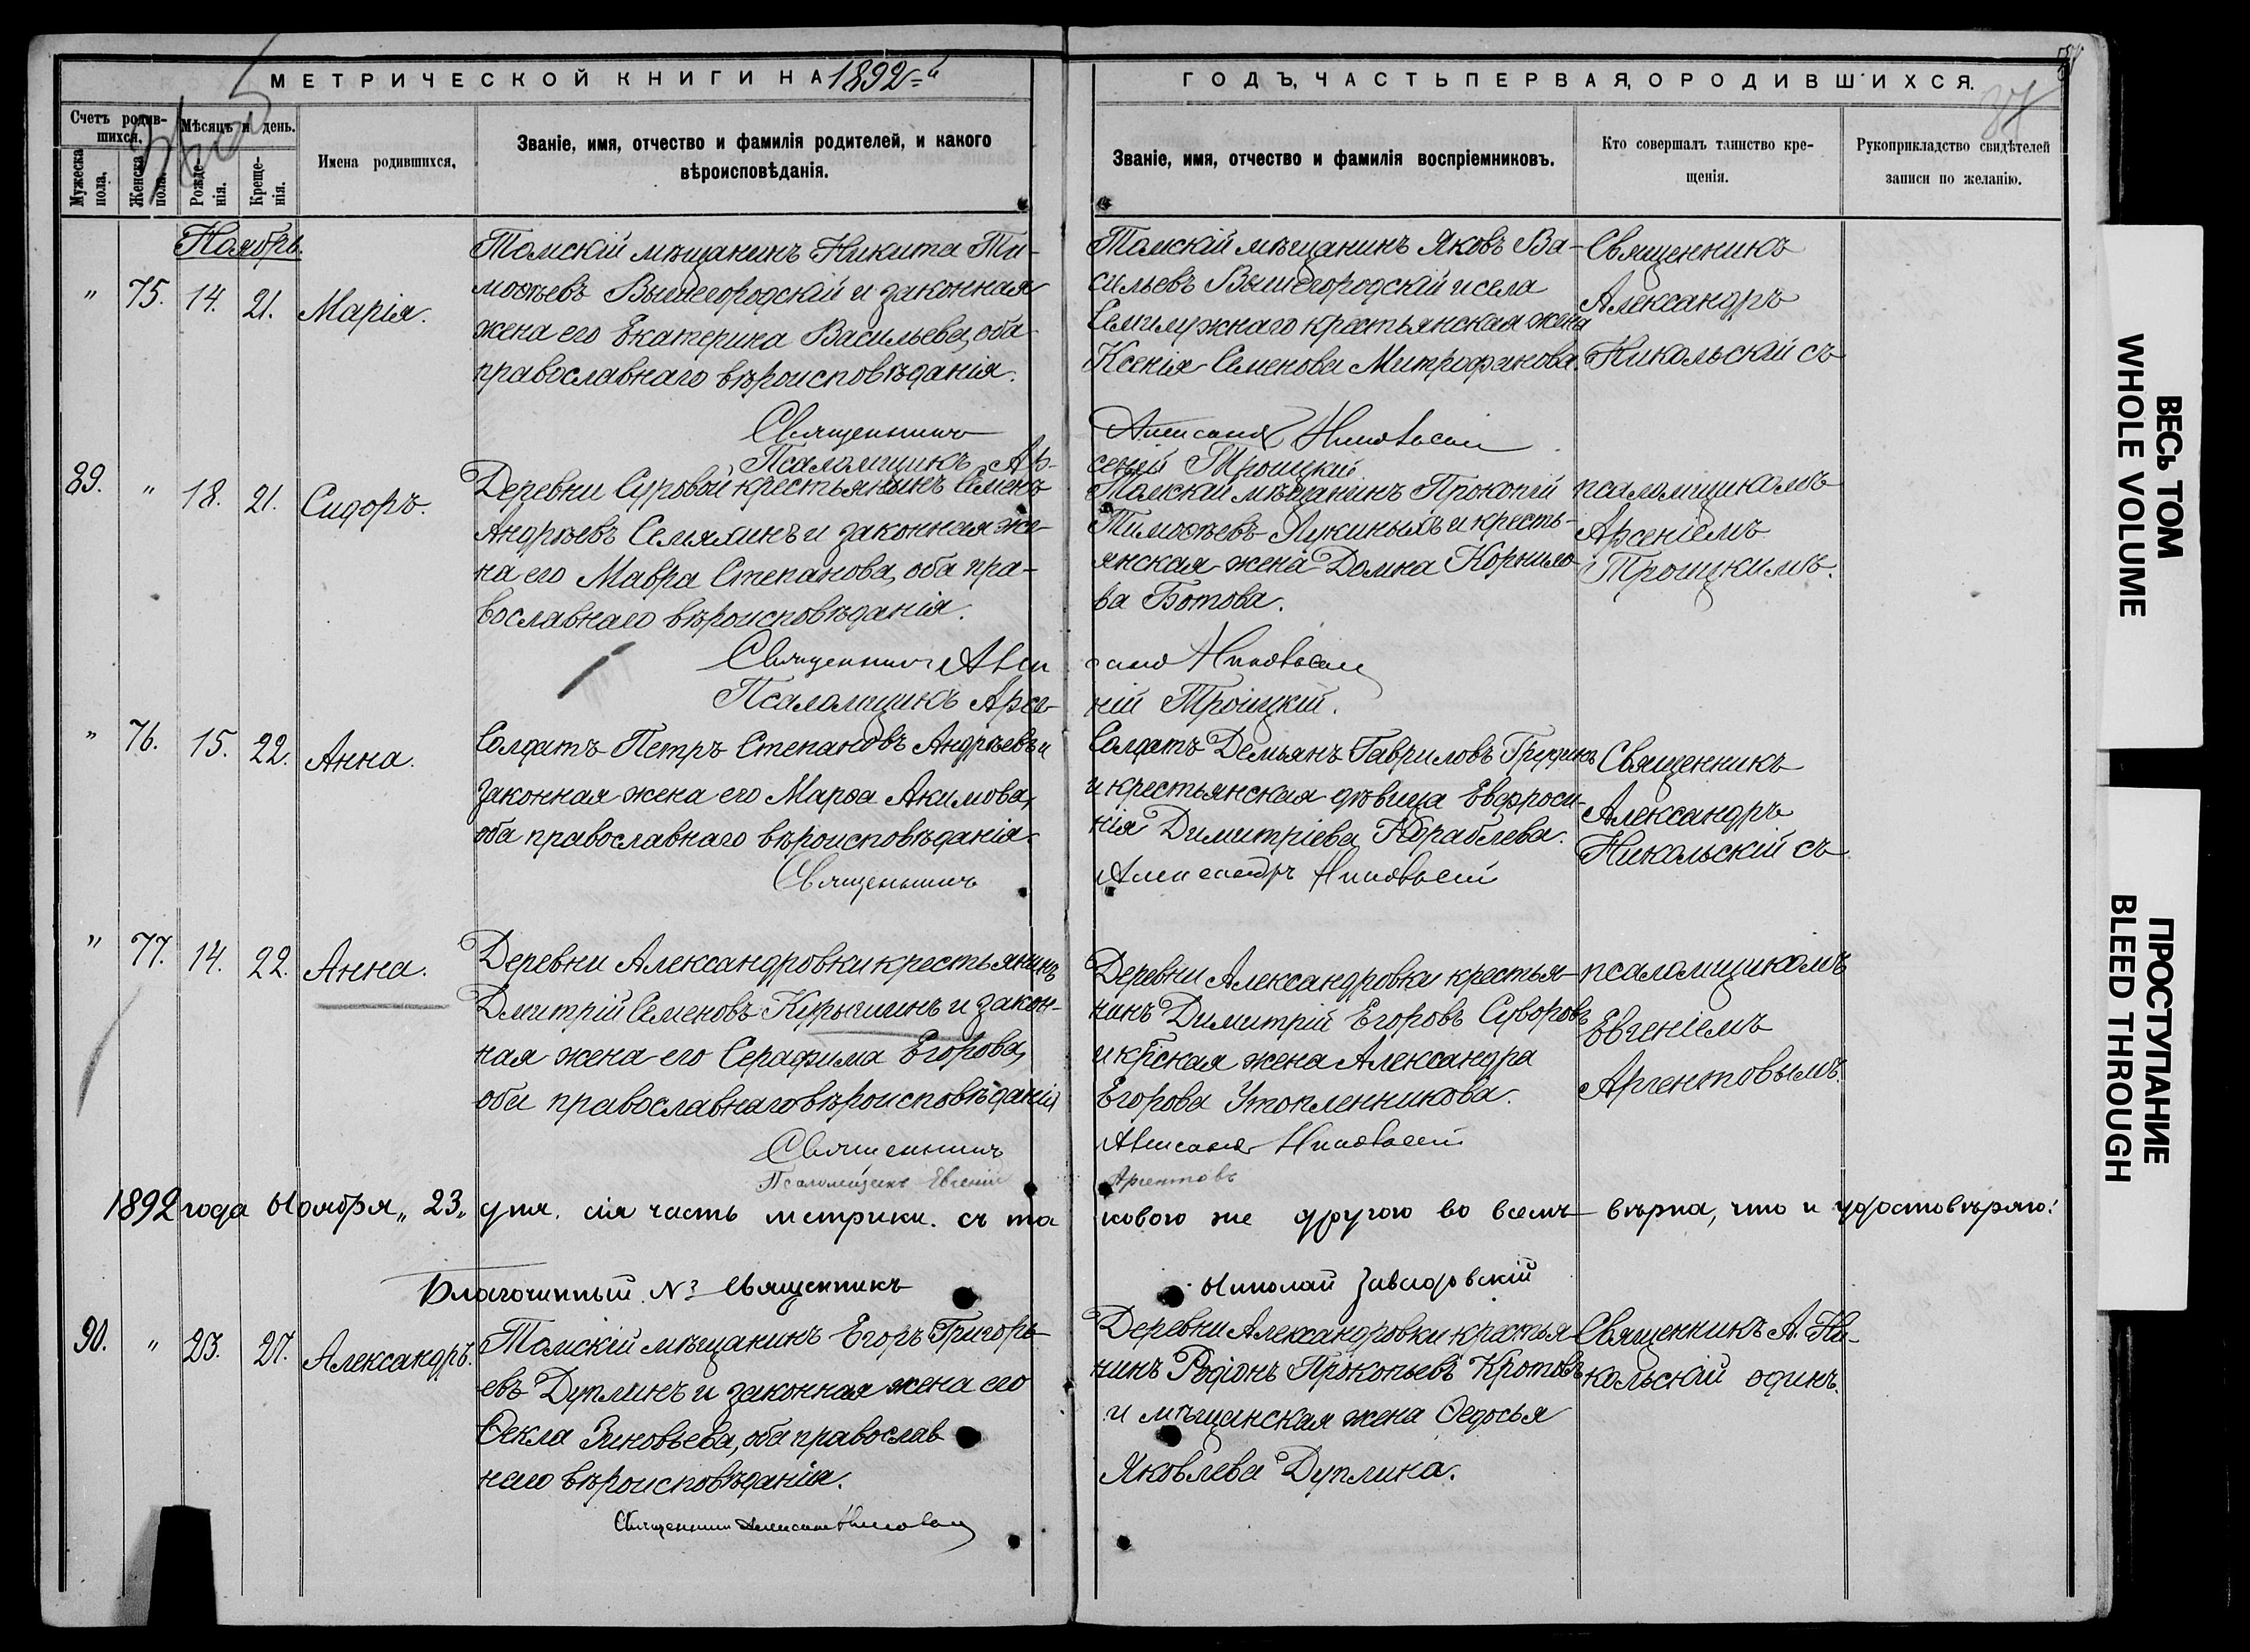 МЕТРИЧЕСКОЙ КНИГИ НА 1892-й
ГОДЪ, ЧАСТЬ ПЕРВАЯ, О РОДИВШИХСЯ.
Счетъ родив-
шихся.
Мужеска
пола.
Женска
пола.
Мѣсяцъ и день.
Рожде-
нія.
Креще-
нія.
Имена родившихся,
Званіе, имя, отчество и фамилія родителей, и какого
вѣроисповѣданія.
Званіе, имя, отчество и фамилія воспріемниковъ.
Кто совершалъ таинство кре-
щенія.
Рукоприкладство свидѣтелей
записи по желанію.
Ноябрь.
" 75. 14. 21. Марія.
Томскій мѣщанинъ Никита Ти-
моѳѣевъ Вышегородскій и законная
жена его Екатерина Васильева, оба
православнаго вѣроисповѣданія.
Томскій мѣщанинъ Яковъ Ва-
сильевъ Вышегородскій и села
Семилужнаго крестьянская жена
Ксенія Семенова Митрофанова.
Священникъ
Александръ
Никольскій съ
Священникъ
Псаломщикъ Ар-
сеній Троицкій
89. " 18. 21. Сидоръ.
Деревни Суровой крестьянинъ Семенъ
Андрѣевъ Семяхинъ и законная же-
на его Мавра Степанова, оба пра-
вославнаго вѣроисповѣданія.
Томскій мѣщанинъ Прокопій
Тимоѳѣевъ Лукиныхъ и кресть-
янская жена Домна Корнило-
ва Ботова.
псаломщикомъ
Арсеніемъ
Троицкимъ.
Священникъ
Псаломщикъ Арсе-
ній Троицкій.
" 76. 15. 22. Анна.
Солдатъ Петръ Степановъ Андрѣевъ и
законная жена его Марѳа Акимова,
оба православнаго вѣроисповѣданія.
Солдатъ Демьянъ Гавриловъ
и крестьянская дѣвица Евфроси-
нія Димитріева Кораблева.
Священникъ
Александръ
Никольскій съ
Священникъ
Александръ Никольскій
" 77. 14. 22. Анна.
Деревни Александровки крестьянинъ
Дмитрій Семеновъ Курышинъ и закон-
ная жена его Серафима Егорова,
оба православнаго вѣроисповѣданія
Деревни Александровки крестья-
нинъ Димитрій Егоровъ Суворовъ
и крская жена Александра
Егорова Утопленникова.
псаломщикомъ
Евгеніемъ
Аргентовымъ.
Священникъ
Псаломщикъ Евгеній
Аргентовъ
1892 года Ноября „23„ дня. сія часть метрики. съ та
ковою же другою во всемъ вѣрна, что и удостовѣряю:
Благочинный № Священникъ
Николай Завадовскій
90. " 23. 27. Александръ.
Томскій мѣщанинъ Егоръ Григорь-
евъ Дуплинъ и законная жена его
Ѳекла Зиновьева, оба православ
наго вѣроисповѣданія.
Деревни Александровки крестья-
нинъ Родіонъ Прокопьевъ Кротовъ
и мѣщанская жена Ѳедосья
Яковлева Дуплина.
Священникъ А. Ни-
кольскій одинъ.
Священникъ
ВЕСЬ ТОМ
WHOLE VOLUME
ПРОСТУПАНИЕ
BLEED THROUGH